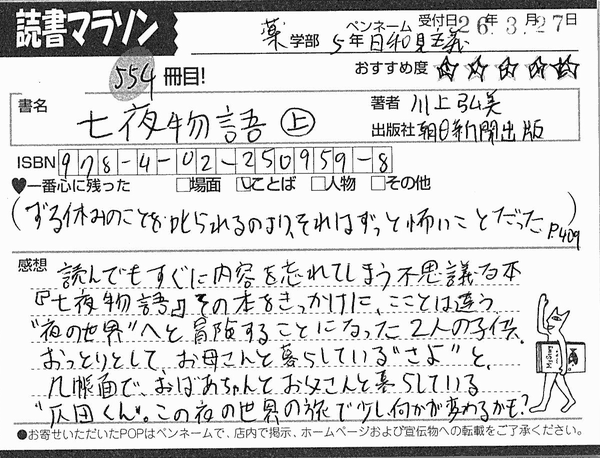 読書マラソン
薬学部 5年 ペンネーム 日和見主義 受付日26年3月27日
554冊目! おすすめ度 ☆☆☆☆☆
書名 七夜物語 上
著者 川上弘美
出版社 朝日新聞出版
ISBN 978-4-02-250959-8
♥一番心に残った □場面 ☑ことば □人物 □その他
(ずる休みのことを叱られるのより、それはずっと怖いことだった P.409)
感想 読んでもすぐに内容を忘れてしまう不思議な本
『七夜物語』。その本をきっかけに、ここではない違う
"夜の世界"へと冒険することになった2人の子供。
おっとりとして、お母さんと暮らしている"さよ"と、
几帳面で、おばあちゃんとお父さんと暮らしている
"仄田くん"。この夜の世界の旅で少し何かが変わるかも?
●お寄せいただいたPOPはペンネームで、店内で掲示、ホームページおよび宣伝物への転載をご了承ください。